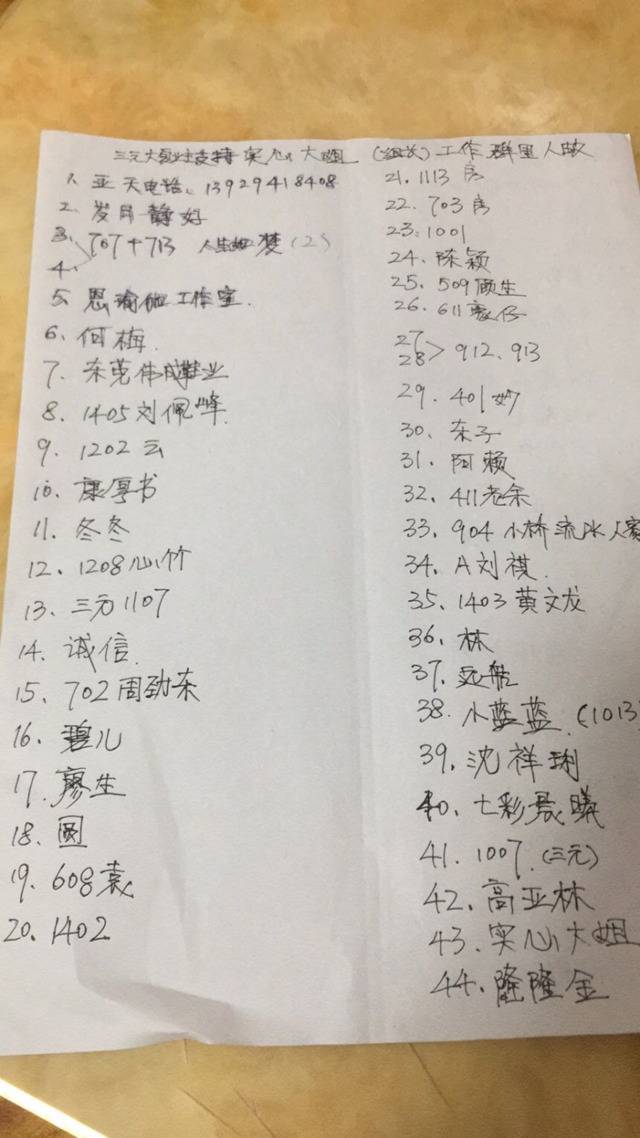 三元大业主支持实心大姐(组长)工作群里人数
1. 亚天电话:13929418408
2. 岁月静好
3. 707+713 人生如梦(2)
4.
5. 思瑜伽工作室.
6. 何梅.
7. 东莞伟成鞋业
8. 1405刘佩峰.
9. 1202云
10. 康厚书
11. 冬冬
12. 1208心竹
13. 三方1107
14. 诚信.
15. 702周劲东
16. 碧儿
17. 廖生
18. 圆
19. 608袁
20. 1402
21. 1113房
22. 703房
23. 1001
24. 陈颖
25. 509顾生
26. 611仔
27
28> 912、913
29. 401妙
30. 东子
31. 阿赖
32. 411老余
33. 904小桥流水人家
34. A刘祺.
35. 1403黄文龙
36. 林
37. 远航
38. 小蓝蓝.(1013
39. 沈祥琍
40. 七彩晨曦
41. 1007.(三元)
42. 高亚林
43. 实心大姐
44. 隆隆金